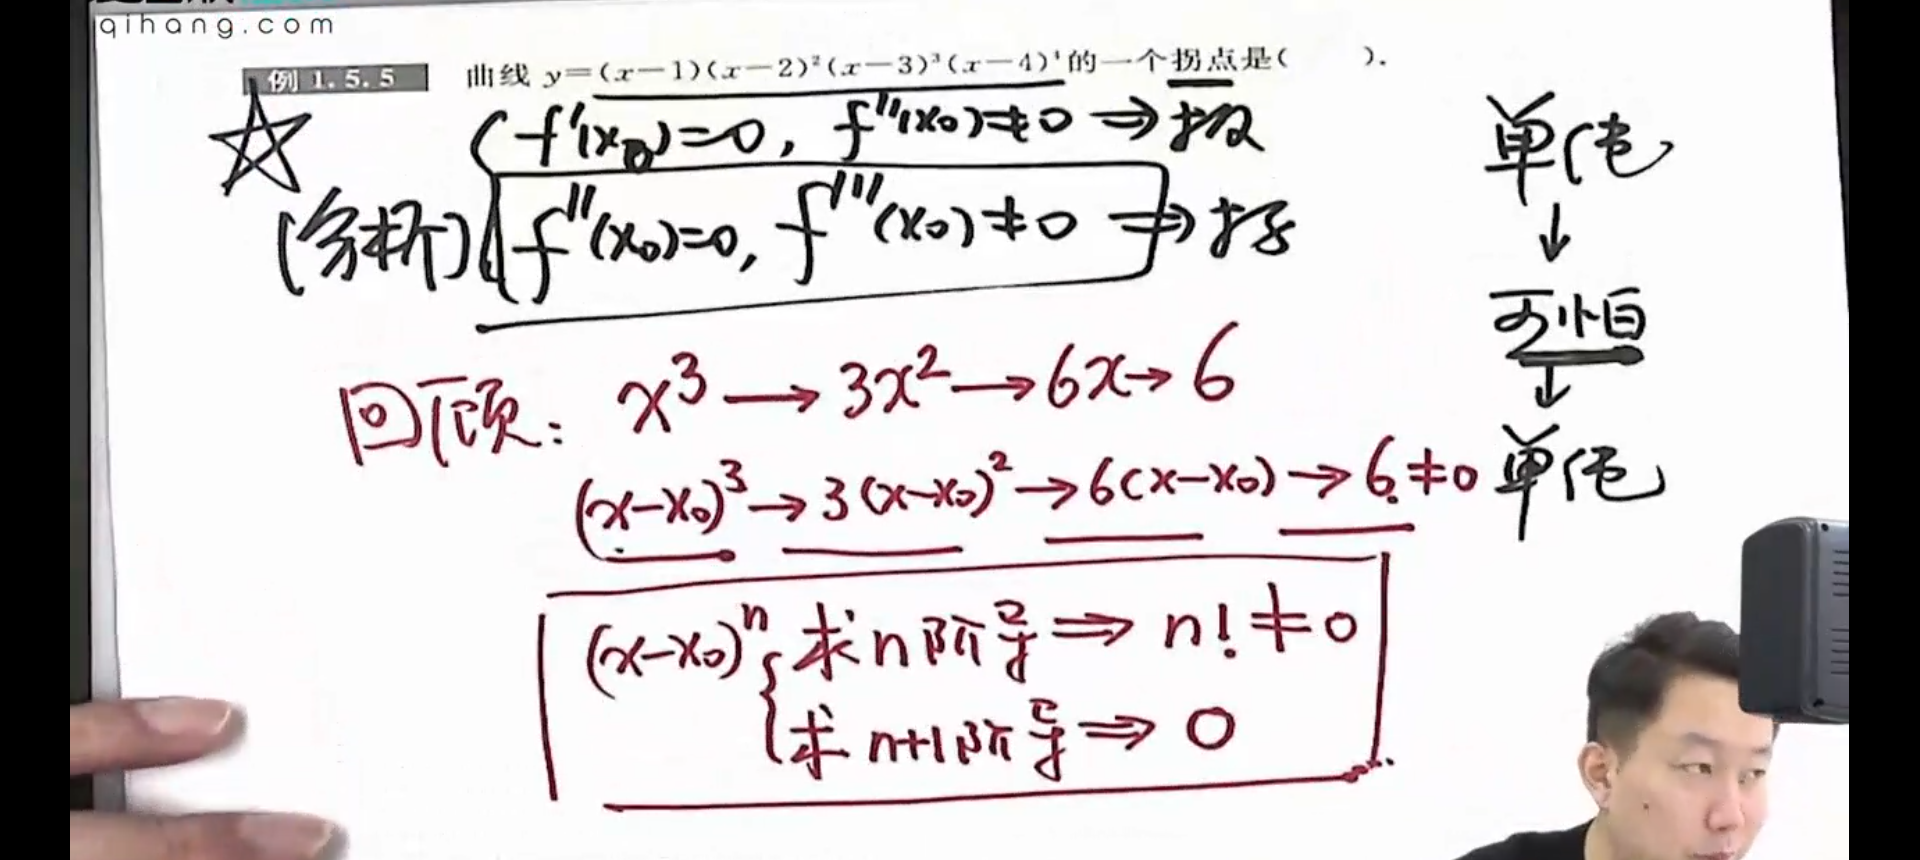 qihang.com
例 1.5.5 曲线 y=(x-1)(x-2)²(x-3)³(x-4)⁴的一个拐点是( ).
f'(x₀)=0, f''(x₀)≠0 ⇒ 极
(分析) f''(x₀)=0, f'''(x₀)≠0 ⇒ 拐
回顾: x³→3x²→6x→6
(x-x₀)³→3(x-x₀)²→6(x-x₀)→6≠0
(x-x₀)ⁿ { 求n阶导⇒n!≠0
求n+1阶导⇒0
单纯
↓
可怕
↓
单纯